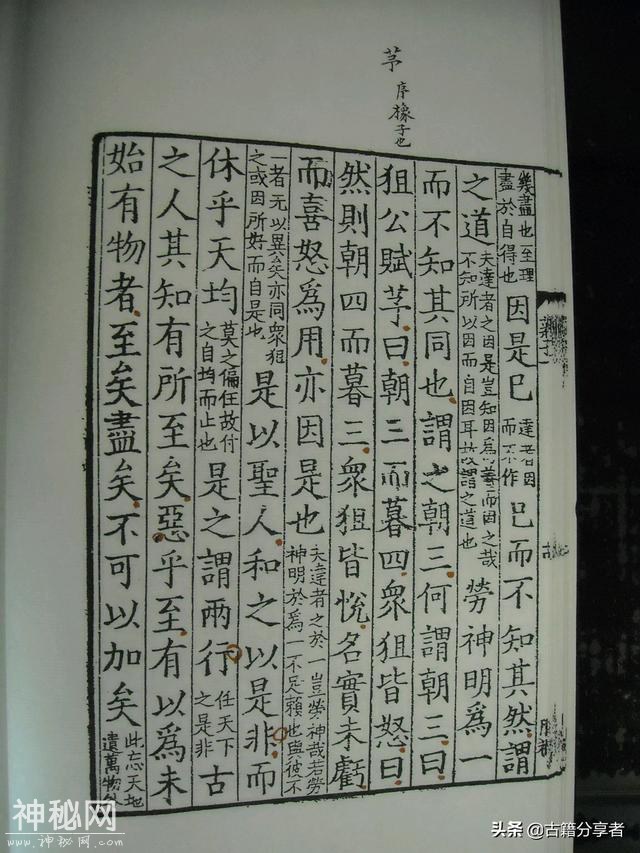 芧 序橡子也
幾盡也至理盡於自得也因是已達者因而不作已而不知其然謂
之道夫達者之因是豈知因爲善而因之哉不知所以因而自因耳故謂之道也勞神明爲一
而不知其同也謂之朝三何謂朝三曰
狙公賦芧曰朝三而暮四衆狙皆怒曰
然則朝四而暮三衆狙皆悅名實未虧
而喜怒爲用亦因是也夫達者之於一豈勞神哉若勞神明於爲一不足賴也與彼不
一者无以異矣亦同衆狙之或因所好而自是也是以聖人和之以是非而
休乎天均莫之偏任故付之自均而止也是之謂兩行任天下之是非古
之人其知有所至矣惡乎至有以爲未
始有物者至矣盡矣不可以加矣此忘天地遺萬物外
神秘网
www.神秘网.com
头条 @古籍分享者